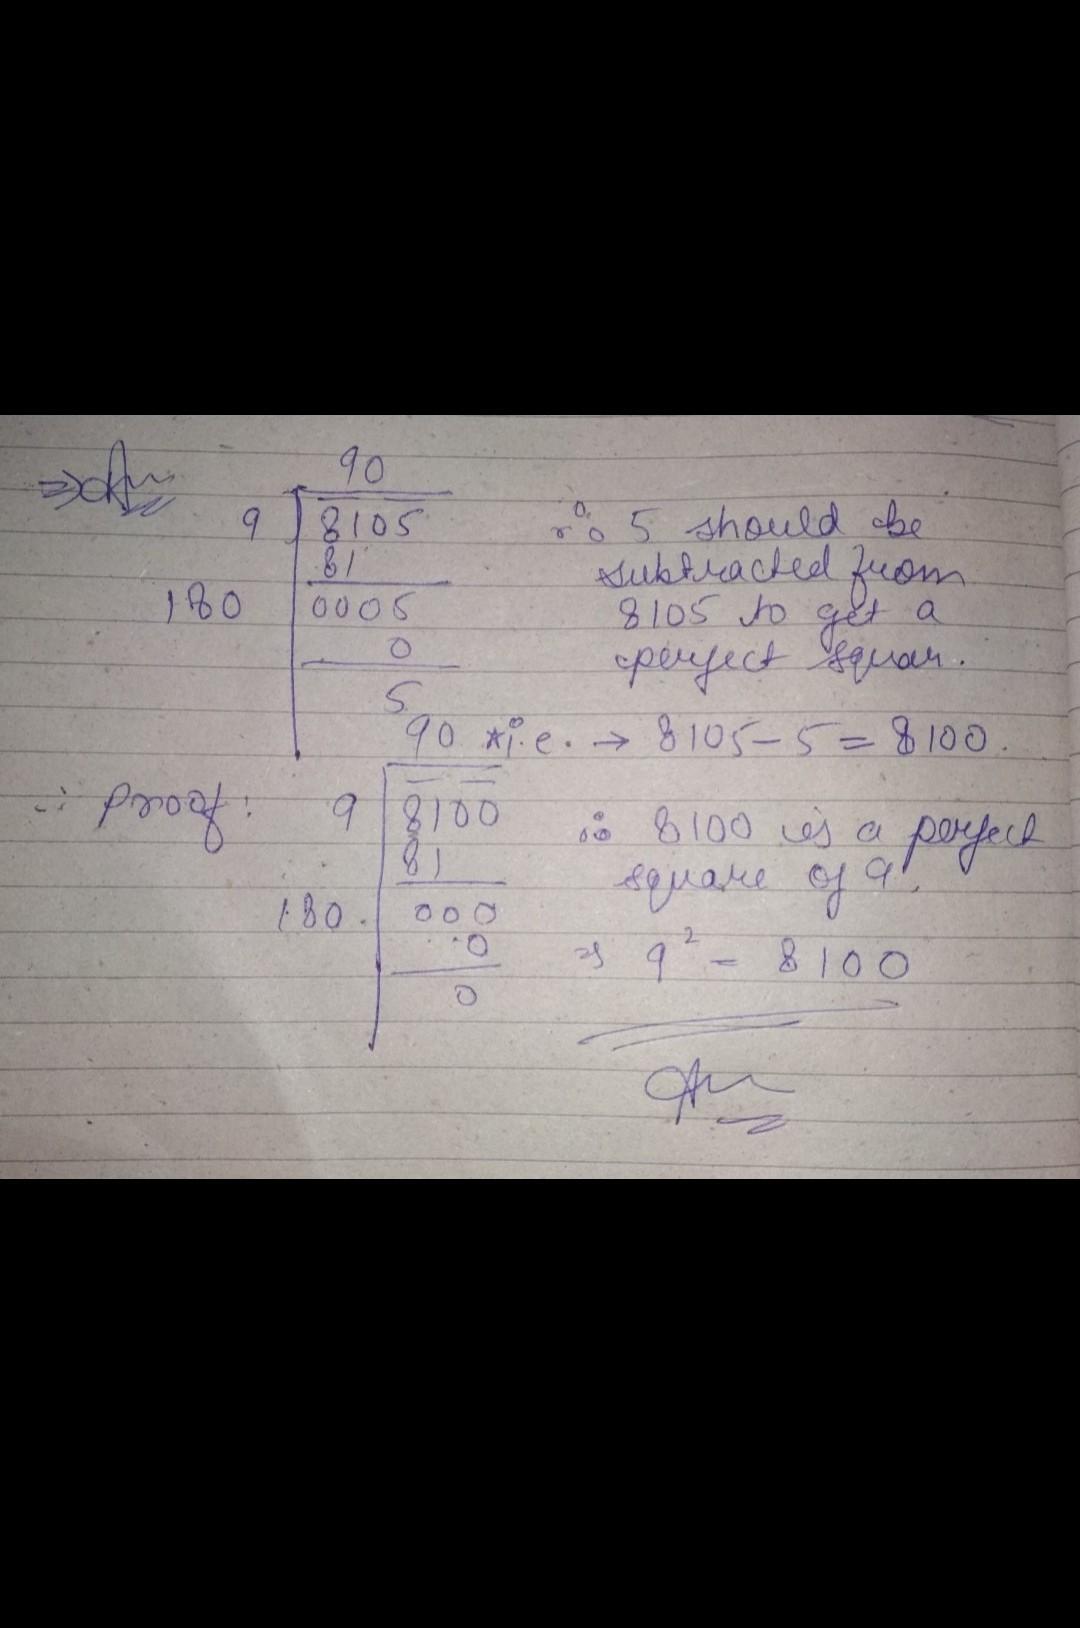 ⇒ Ans
90
9 8105 ∴ 5 should be
81 subtracted from
180 0005 8105 to get a
0 perfect squar.
5
90 * i.e. → 8105 - 5 = 8100.
∴ Proof: 9 8100 ∴ 8100 is a perfect
81 square of 9.
180. 000
0 ⇒ 9² = 8100
0
Ans